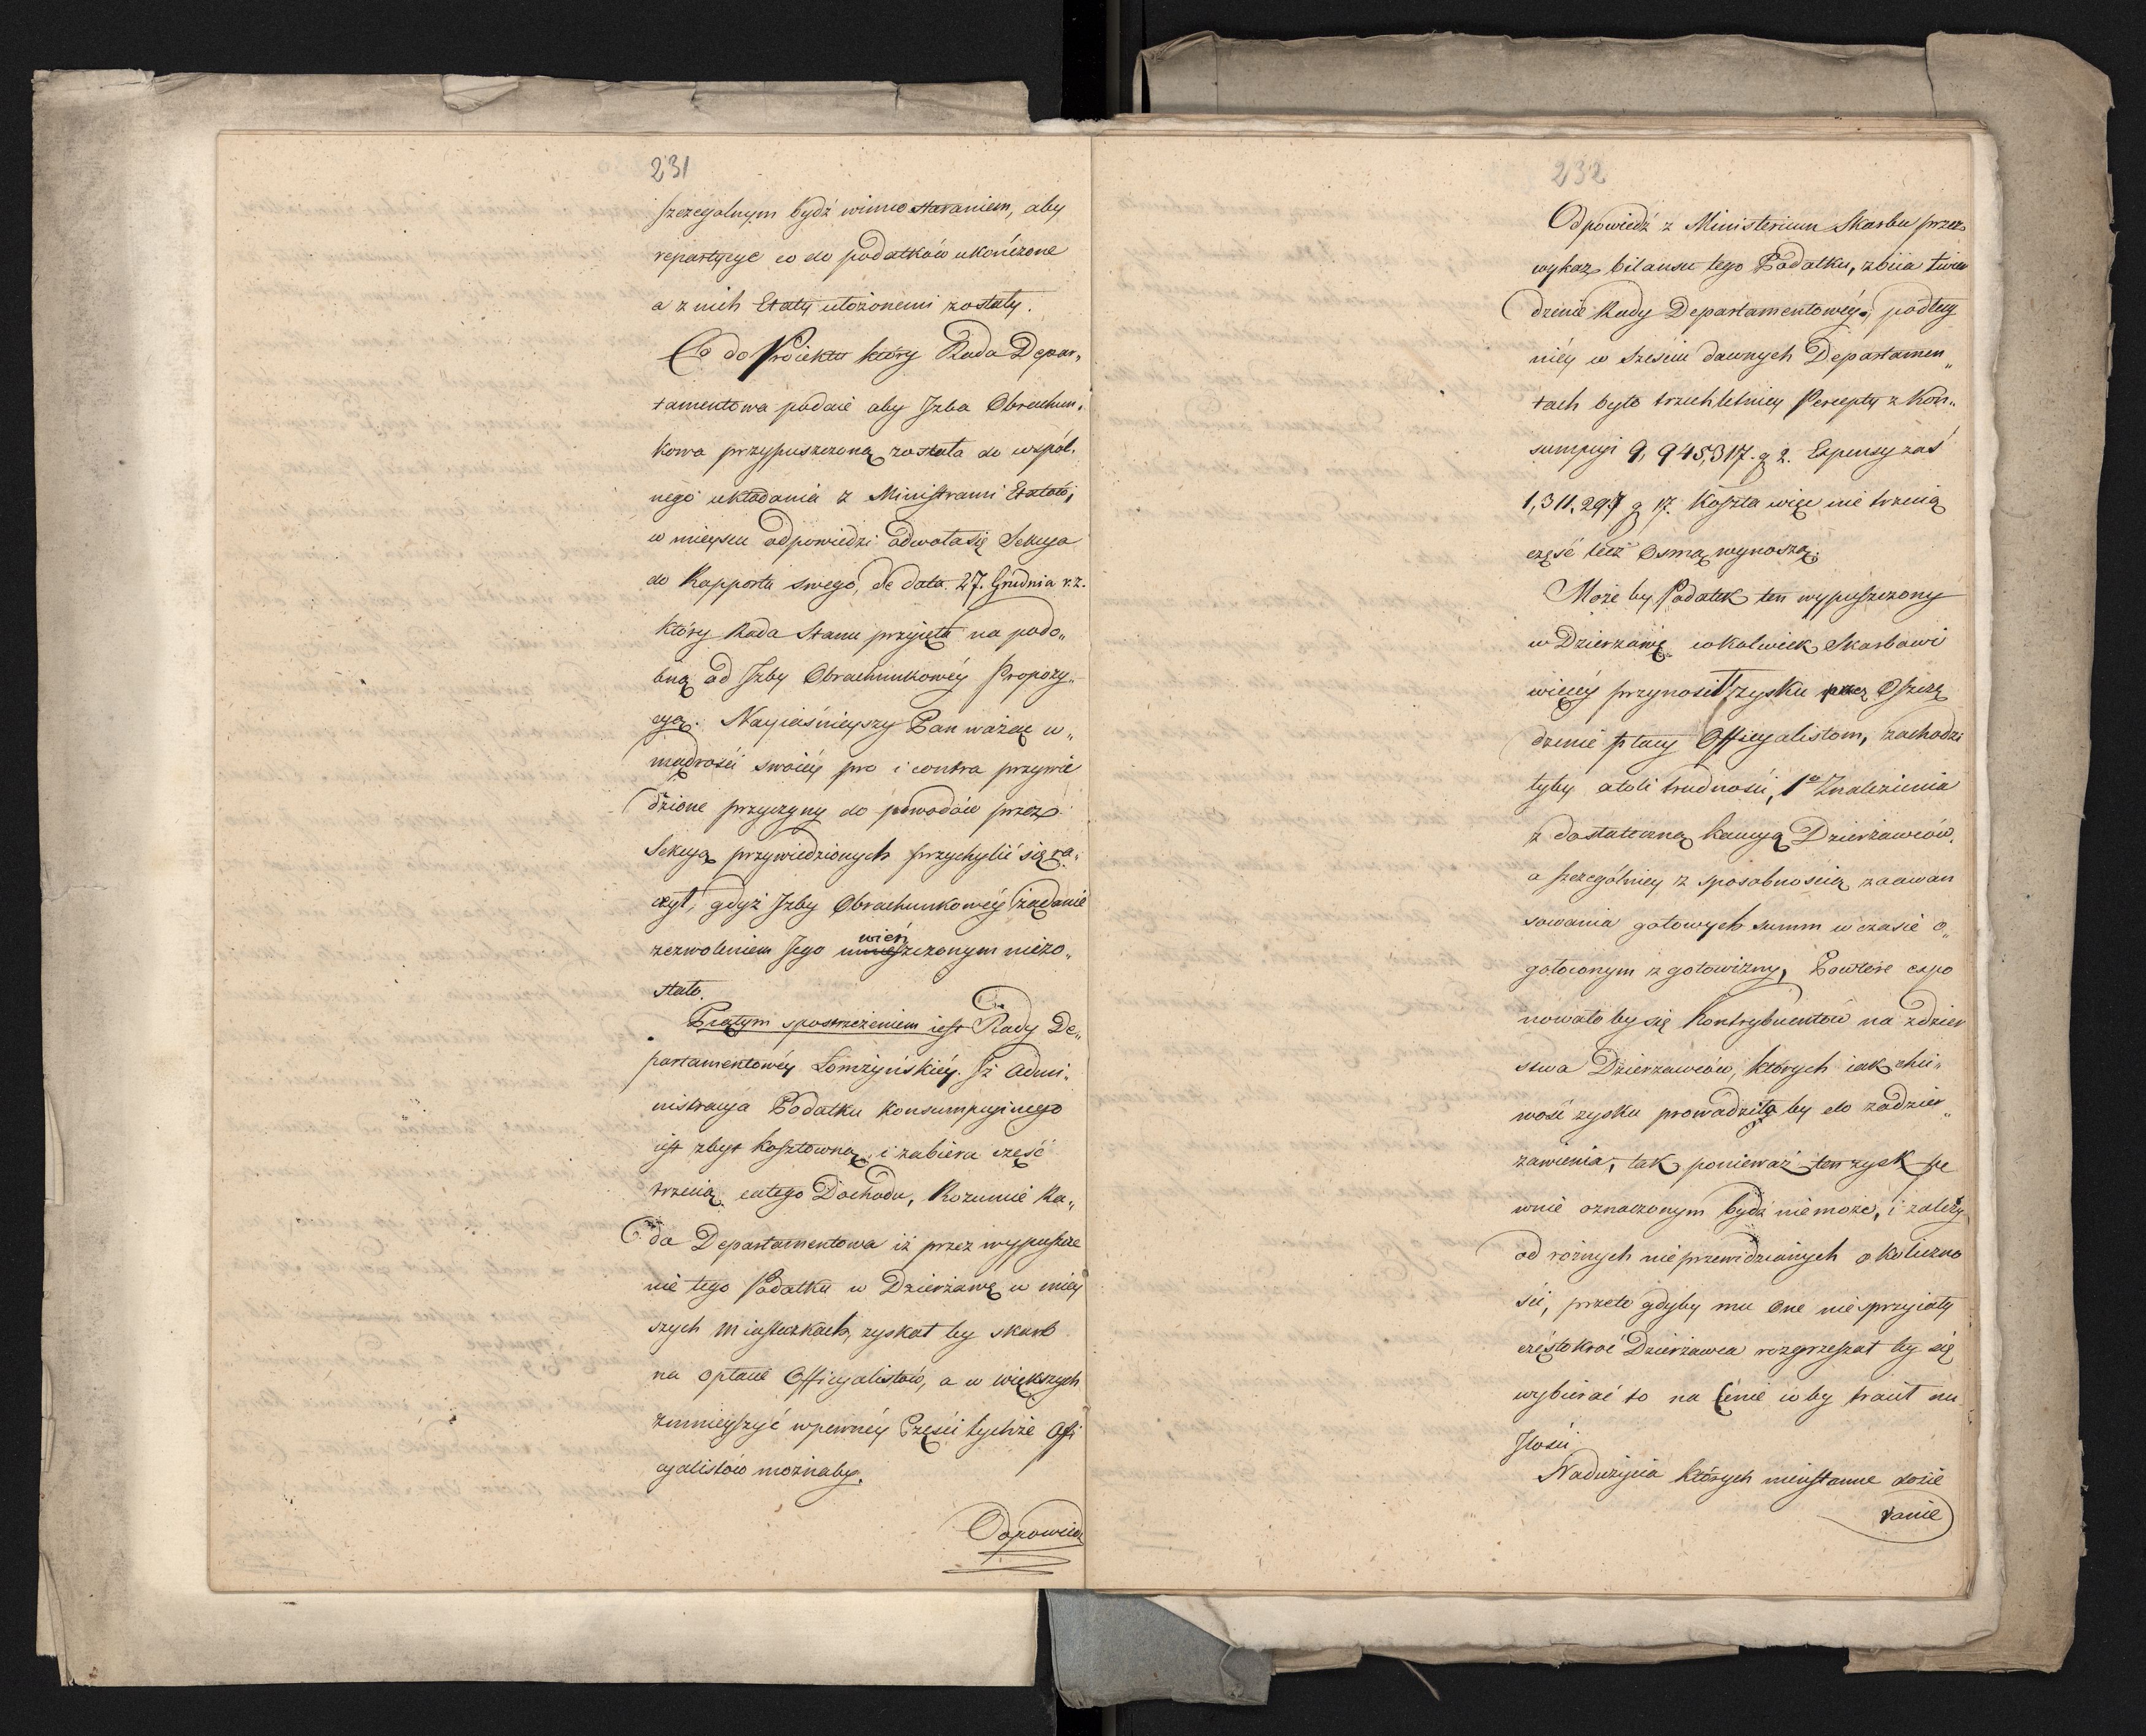 231
szczegolnym bydź winno staraniem, aby
repartycye co do podatków ukończone
a z nich Etaty ułożonemi zostały.
Co do Proiektu który Rada Depar„
tamentowa podaie aby Izba Obrachun„
kowa przypuszczoną została do wspól„
nego układania z Ministrami Etatów,
w mieyscu odpowiedzi odwoła się Sekcya
do Rapportu swego, de dato 27. Grudnia r. z.
który Rada Stanu przyięła na podo„
bną od Izby Obrachunkowéy Propozy„
cyą. Nayiaśnieyszy Pan ważąc w„
mądrości swoiéy pro i contra przywie
dzione przyczyny do powodów przez
Sekcyą przywiedzionych przychylić się ra„
czył, gdyż Izby Obrachunkowéy żądanie
zezwoleniem Jego uwieńczonym niezo„
stało.
Piątym spostrzeżeniem iest Rady De„
partamentowéy Łomżyńskiéy. Iż Admi„
nistracya Podatku Konsumpcyinego
iest zbyt kosztowną, i zabiera część
trzecią całego Dochodu, Rozumie Ra„
da Departamentowa iż przez wypuszcze
nie tego Podatku w Dzierżawę w mniey
szych miasteczkach, zyskał by skarb
na opłacie Officyalistów, a w większych
zmnieyszyć w pewnéy Części tychże Offi
cyalistów możnaby.
Odpowiedź
232
Odpowiedź z Ministerium Skarbu przez
wykaz bilansu tego Podatku, zbiia twier
dzenie Rady Departamentowéy, podług
niéy w sześciu dawnych Departamen„
tach było trzechletniey Percepty z Kon„
sumpcyi 9,945,317. g 2. Expensy zaś
1,311,297 g 17. Koszta więc nie trzecią
część lecz osmą wynoszą.
Może by Podatek ten wypuszczony
w Dzierżawę cokolwiek Skarbowi
więcéy przynosił zysku przez Oszczę
dzenie płacy Officyalistom, zachodzi
łyby atoli trudności, 1o Znalezienia
z dostateczną kaucyą Dzierżawców,
a szczególniey z sposobnością zaawan
sowania gotowych summ w czasie o„
gołoconym z gotowizny, Powtóre expo
nowało by się Kontrybuentów na zdzier
stwa Dzierzawców, których iak chci„
wość zysku prowadziła by do zadzier„
zawienia, tak ponieważ ten zysk pe
wnie oznaczonym bydź niemoże, i zależy
od roźnych nieprzewidzianych okoliczno
ści, przeto gdyby mu One niesprzyiały
częstokroć Dzierżawca rozgrzeszał by się
wybierać to na Cenie coby tracił na
Ilości
Nadużycia których nieustanne docie
kanie